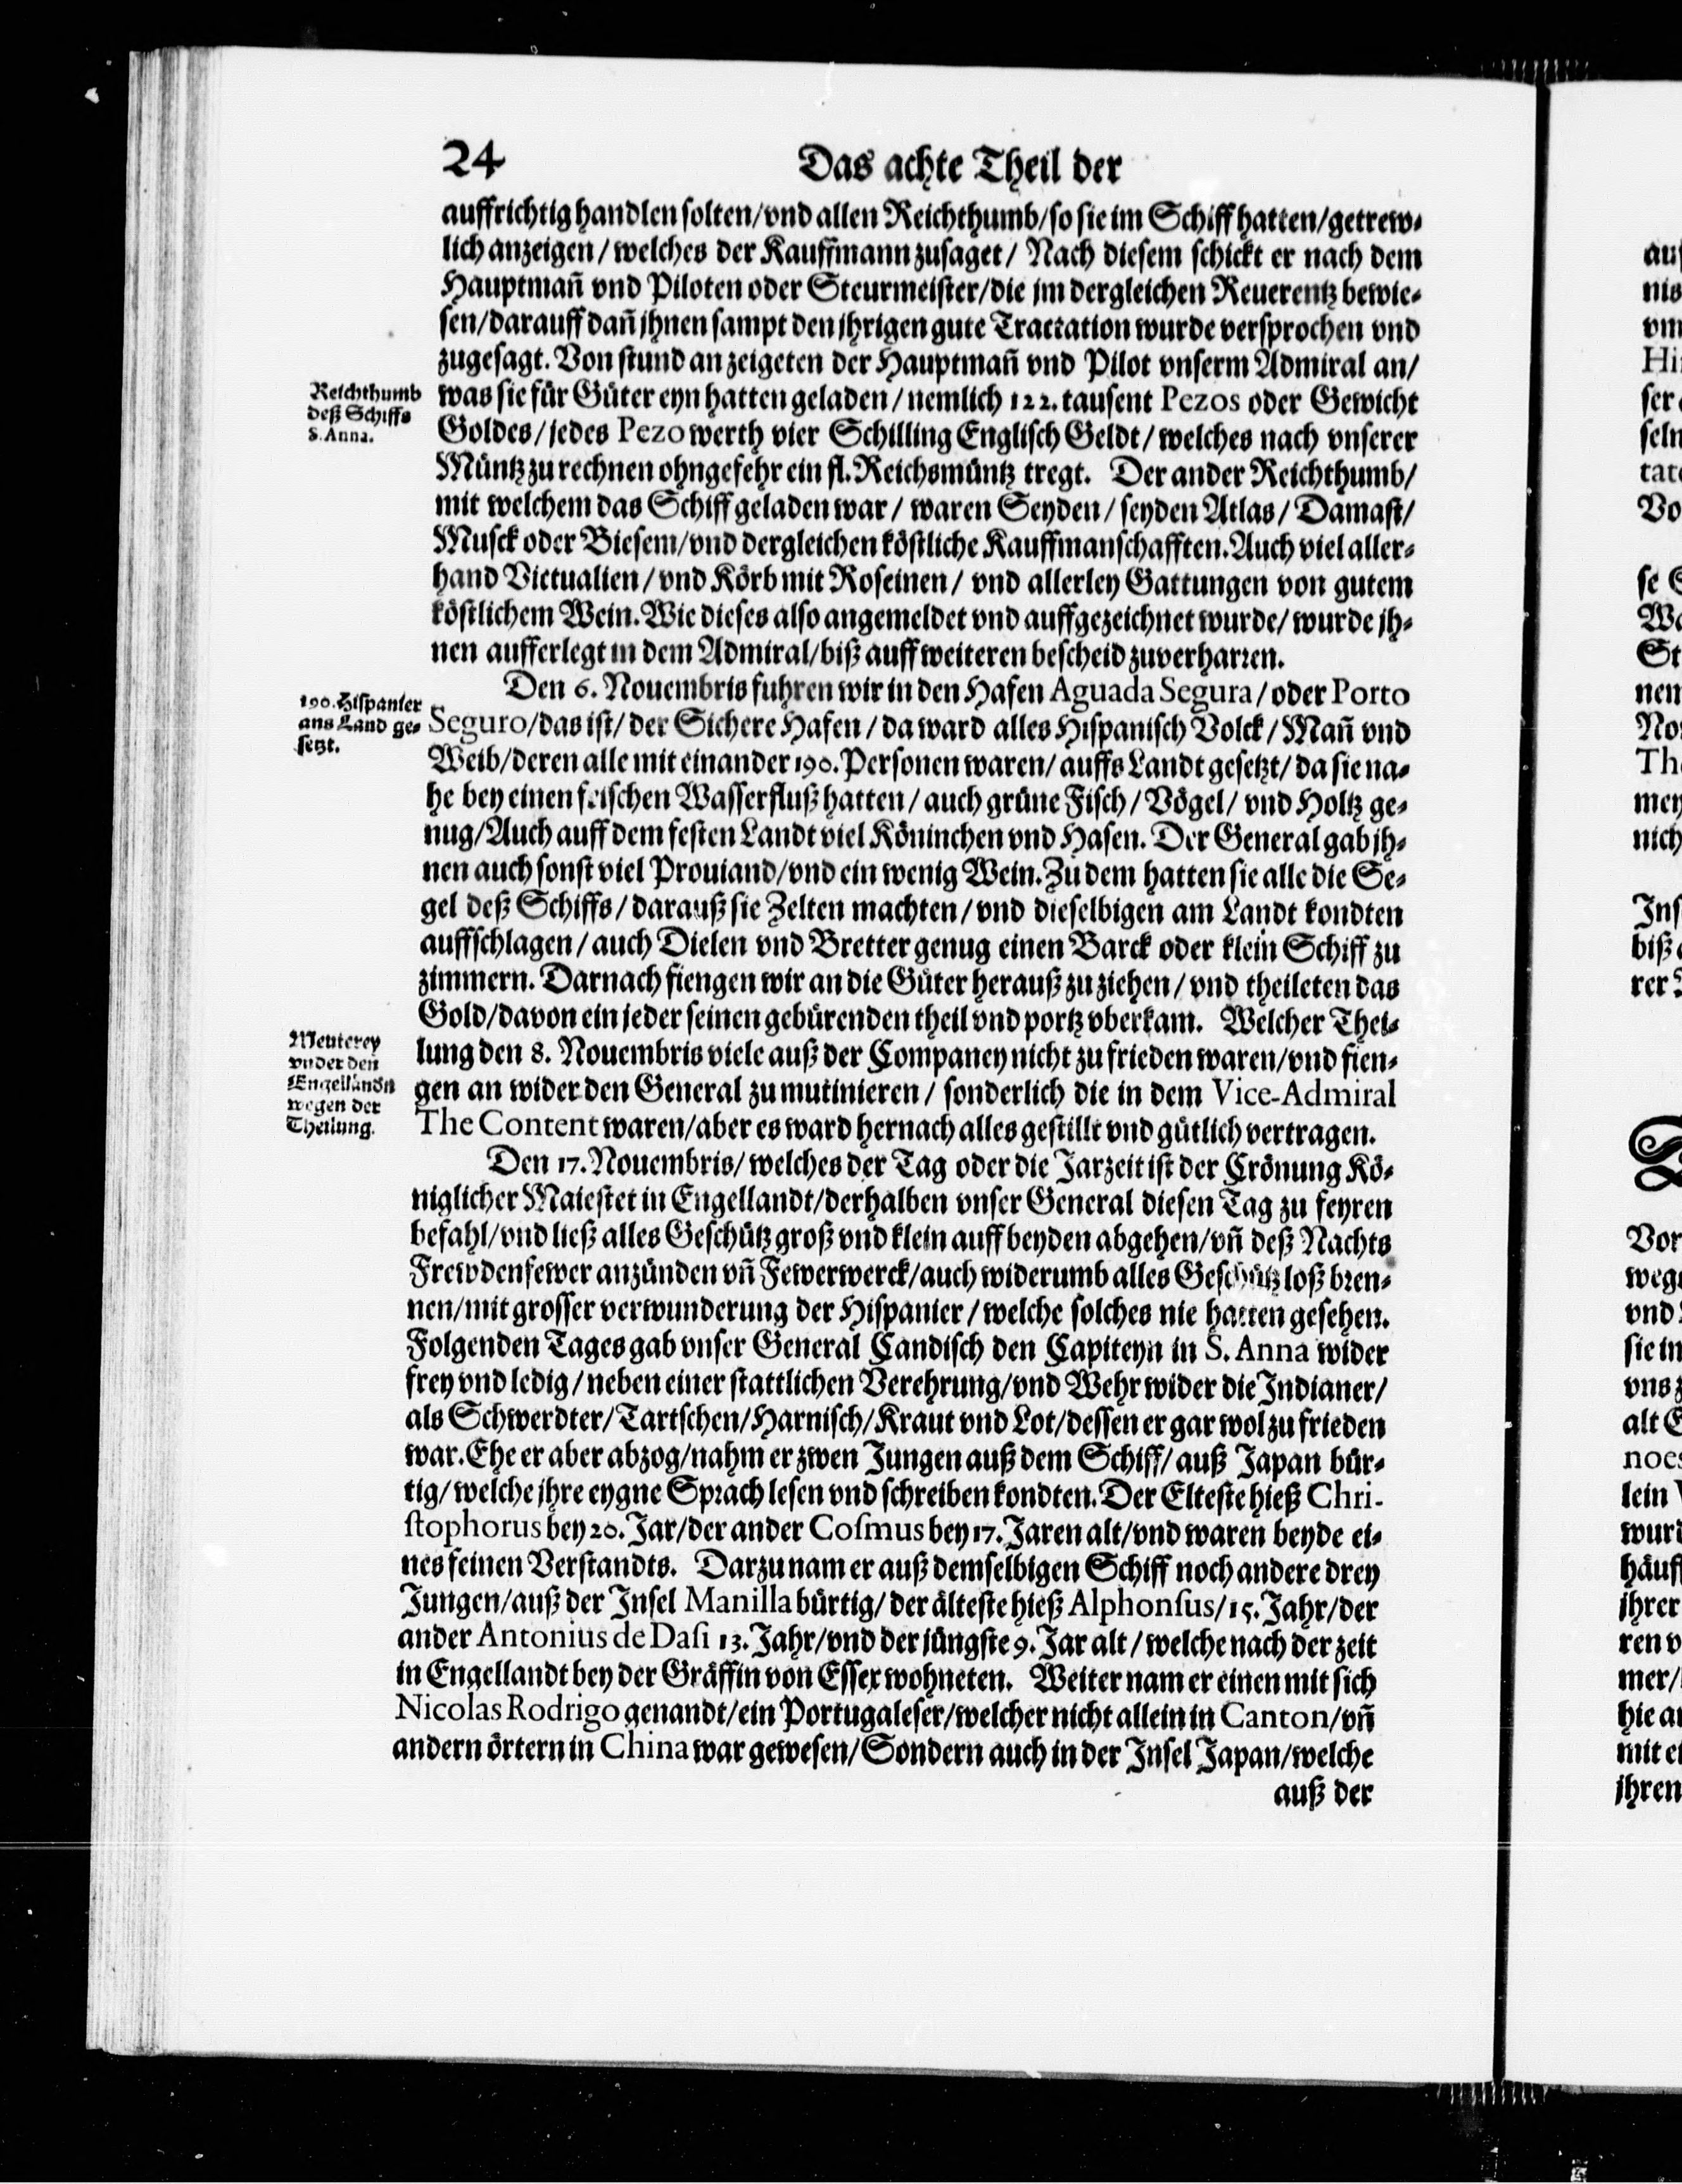 24 Das achte Theil der
auffrichtig handlen solten/vnd allen Reichthumb/so sie im Schiff hatten/getrew-
lich anzeigen/welches der Kauffmann zusaget/ Nach diesem schickt er nach dem
Hauptmañ vnd Piloten oder Steurmeister/die jm dergleichen Reuerentz bewie-
sen/darauff dañ jhnen sampt den jhrigen gute Tractation wurde versprochen vnd
zugesagt. Von stund an zeigeten der Hauptmañ vnd Pilot vnserm Admiral an/
Reichthumb
deß Schiffs
S. Anna.
was sie für Güter eyn hatten geladen/nemlich 122. tausent Pezos oder Gewicht
Goldes/jedes Pezo werth vier Schilling Englisch Geldt/welches nach vnserer
Müntz zu rechnen ohngefehr ein fl. Reichsmüntz tregt. Der ander Reichthumb/
mit welchem das Schiff geladen war/ waren Seyden/ seyden Atlas/ Damast/
Musck oder Biesem/vnd dergleichen köstliche Kauffmanschafften. Auch viel aller-
hand Victualien/vnd Körb mit Roseinen/ vnd allerley Gattungen von gutem
köstlichem Wein. Wie dieses also angemeldet vnd auffgezeichnet wurde/ wurde jh-
nen aufferlegt in dem Admiral/biß auff weiteren bescheid zuverharren.
Den 6. Nouembris fuhren wir in den Hafen Aguada Segura/oder Porto
190. Hispanier
ans Land ge-
setzt.
Seguro/das ist/ der Sichere Hafen/ da ward alles Hispanisch Volck/ Mañ vnd
Weib/deren alle mit einander 190. Personen waren/ auffs Landt gesetzt/ da sie na-
he bey einen frischen Wasserfluß hatten/ auch grüne Fisch/ Vögel/ vnd Holtz ge-
nug/Auch auff dem festen Landt viel Köninchen vnd Hasen. Der General gab jh-
nen auch sonst viel Prouiand/vnd ein wenig Wein. Zu dem hatten sie alle die Se-
gel deß Schiffs/ darauß sie Zelten machten/ vnd dieselbigen am Landt kondten
auffschlagen/ auch Dielen vnd Bretter genug einen Barck oder klein Schiff zu
zimmern. Darnach fiengen wir an die Güter herauß zu ziehen/ vnd theileten das
Gold/davon ein jeder seinen gebürenden theil vnd portz vberkam. Welcher Thei-
Meuterey
vnder den
Engelländn
wegen der
Theilung.
lung den 8. Nouembris viele auß der Companey nicht zu frieden waren/vnd fien-
gen an wider den General zu mutinieren/ sonderlich die in dem Vice-Admiral
The Content waren/aber es ward hernach alles gestillt vnd gütlich vertragen.
Den 17. Nouembris/ welches der Tag oder die Jarzeit ist der Crönung Kö-
niglicher Maiestet in Engellandt/derhalben vnser General diesen Tag zu feyren
befahl/vnd ließ alles Geschütz groß vnd klein auff beyden abgehen/vñ deß Nachts
Frewdenfewer anzünden vñ Fewerwerck/auch widerumb alles Geschütz loß bren-
nen/mit grosser verwunderung der Hispanier/ welche solches nie hatten gesehen.
Folgenden Tages gab vnser General Candisch den Capiteyn in S. Anna wider
frey vnd ledig/ neben einer stattlichen Verehrung/vnd Wehr wider die Indianer/
als Schwerdter/Tartschen/Harnisch/Kraut vnd Lot/dessen er gar wol zu frieden
war. Ehe er aber abzog/nahm er zwen Jungen auß dem Schiff/ auß Japan bür-
tig/ welche jhre eygne Sprach lesen vnd schreiben kondten. Der Elteste hieß Chri-
stophorus bey 20. Jar/der ander Cosmus bey 17. Jaren alt/vnd waren beyde ei-
nes feinen Verstandts. Darzu nam er auß demselbigen Schiff noch andere drey
Jungen/auß der Insel Manilla bürtig/ der älteste hieß Alphonsus/15. Jahr/der
ander Antonius de Dasi 13. Jahr/vnd der jüngste 9. Jar alt/ welche nach der zeit
in Engellandt bey der Gräffin von Essex wohneten. Weiter nam er einen mit sich
Nicolas Rodrigo genandt/ein Portugaleser/welcher nicht allein in Canton/vñ
andern örtern in China war gewesen/Sondern auch in der Insel Japan/welche
auß der